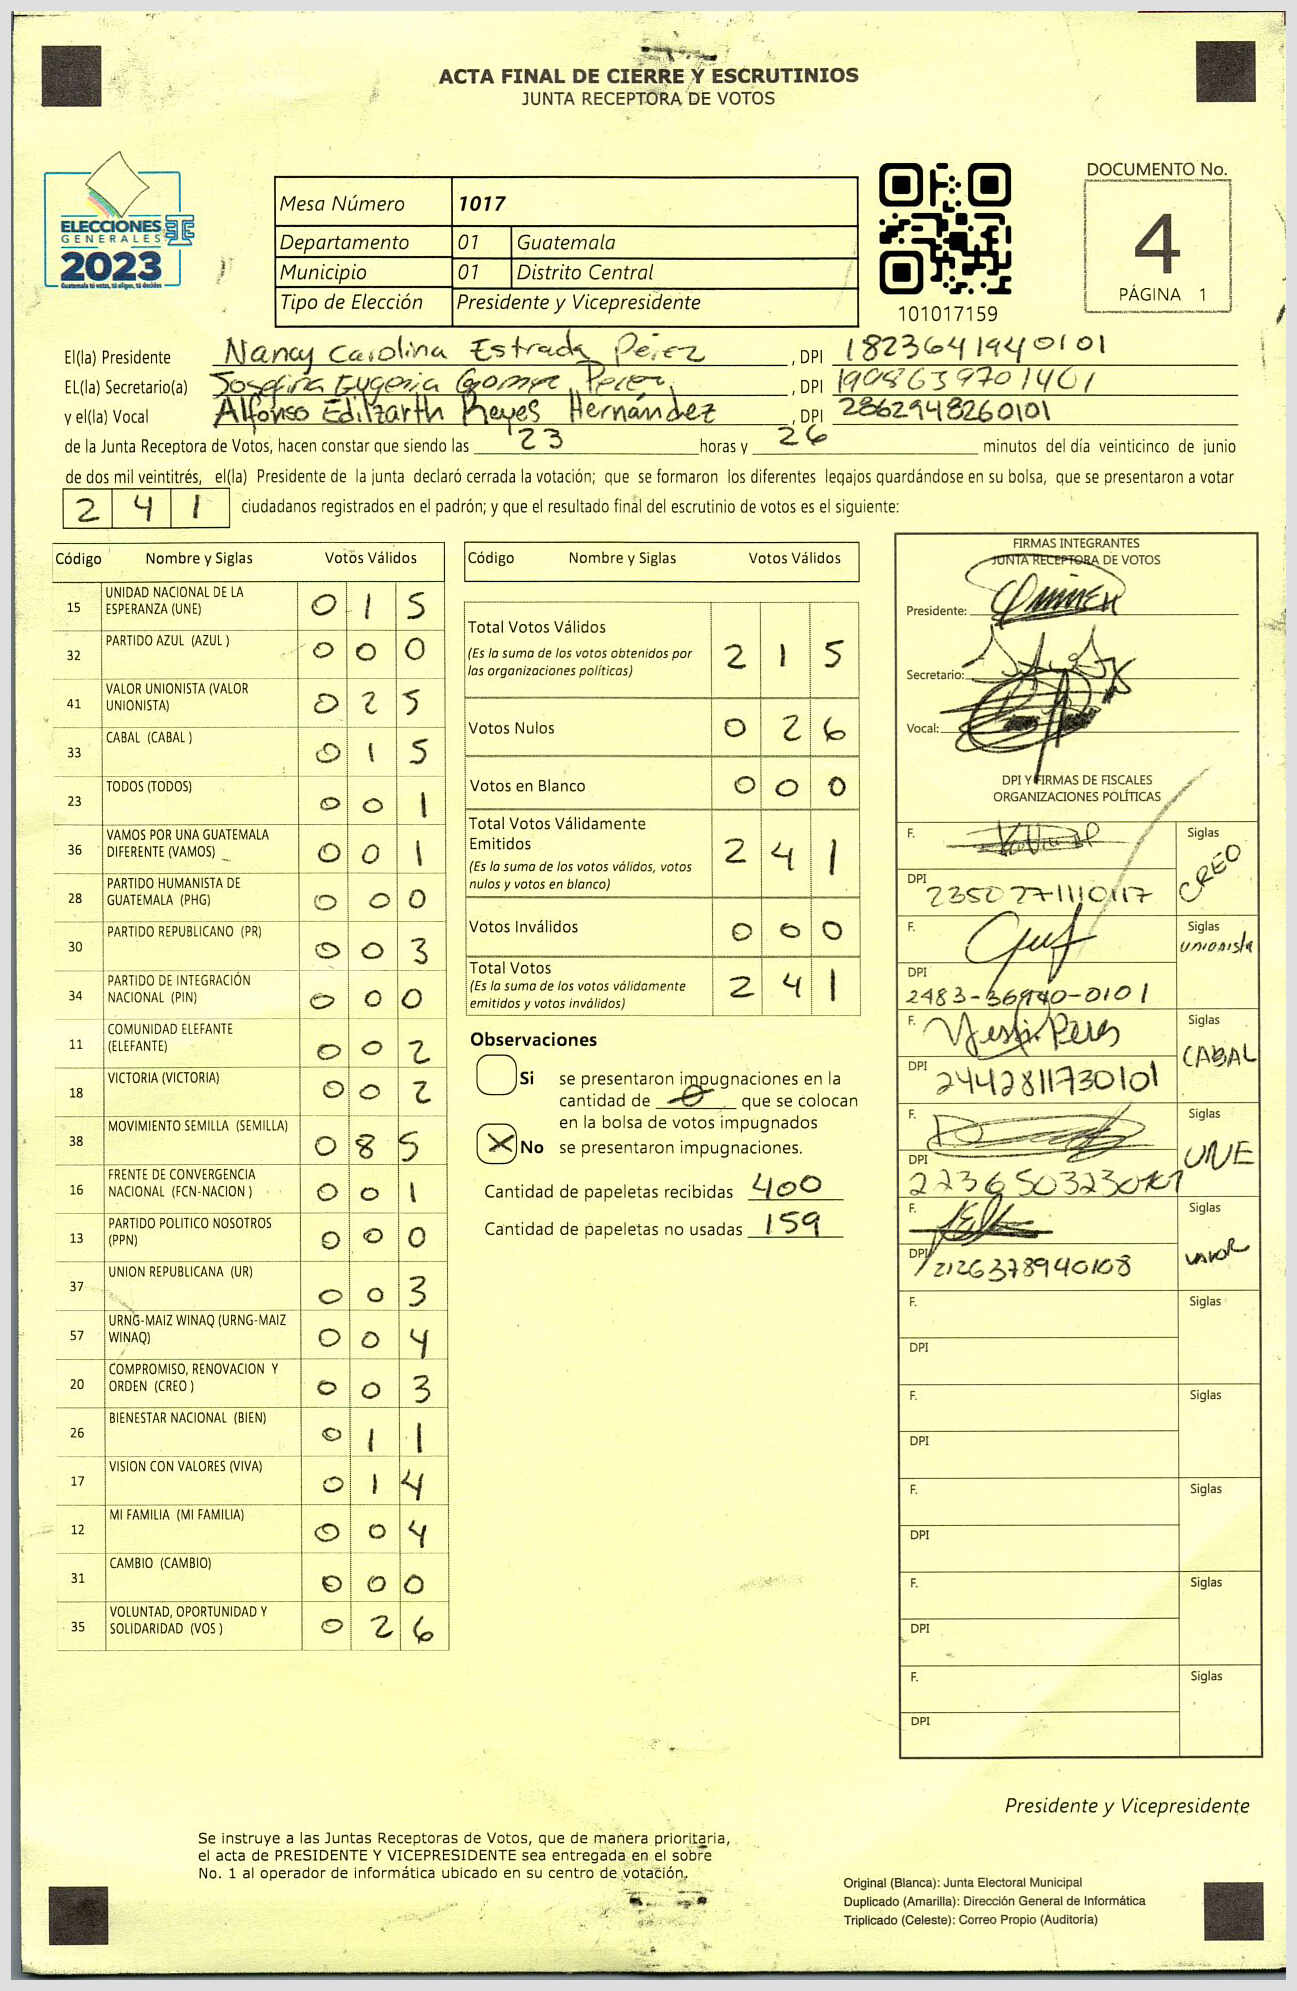 ACTA FINAL DE CIERRE Y ESCRUTINIOS
JUNTA RECEPTORA DE VOTOS
ELECCIONES
GENERALES
2023
Guatemala tú votas, tú eliges, tú decides
Mesa Número 1017
Departamento 01 Guatemala
Municipio 01 Distrito Central
Tipo de Elección Presidente y Vicepresidente
101017159
DOCUMENTO No.
4
PÁGINA 1
El(la) Presidente Nancy Carolina Estrada Pérez, DPI 1823641940101
EL(la) Secretario(a) Josefina Eugenia Gomez Perez, DPI 1908639701401
y el(la) Vocal Alfonso Edilzarth Reyes Hernández, DPI 2862948260101
de la Junta Receptora de Votos, hacen constar que siendo las 23 horas y 26 minutos del día veinticinco de junio
de dos mil veintitrés, el(la) Presidente de la junta declaró cerrada la votación; que se formaron los diferentes legajos guardándose en su bolsa, que se presentaron a votar
241 ciudadanos registrados en el padrón; y que el resultado final del escrutinio de votos es el siguiente:
Código Nombre y Siglas Votos Válidos
15 UNIDAD NACIONAL DE LA ESPERANZA (UNE) 0 1 5
32 PARTIDO AZUL (AZUL ) 0 0 0
41 VALOR UNIONISTA (VALOR UNIONISTA) 0 2 5
33 CABAL (CABAL ) 0 1 5
23 TODOS (TODOS) 0 0 1
36 VAMOS POR UNA GUATEMALA DIFERENTE (VAMOS) 0 0 1
28 PARTIDO HUMANISTA DE GUATEMALA (PHG) 0 0 0
30 PARTIDO REPUBLICANO (PR) 0 0 3
34 PARTIDO DE INTEGRACIÓN NACIONAL (PIN) 0 0 0
11 COMUNIDAD ELEFANTE (ELEFANTE) 0 0 2
18 VICTORIA (VICTORIA) 0 0 2
38 MOVIMIENTO SEMILLA (SEMILLA) 0 8 5
16 FRENTE DE CONVERGENCIA NACIONAL (FCN-NACION ) 0 0 1
13 PARTIDO POLITICO NOSOTROS (PPN) 0 0 0
37 UNION REPUBLICANA (UR) 0 0 3
57 URNG-MAIZ WINAQ (URNG-MAIZ WINAQ) 0 0 4
20 COMPROMISO, RENOVACION Y ORDEN (CREO ) 0 0 3
26 BIENESTAR NACIONAL (BIEN) 0 1 1
17 VISION CON VALORES (VIVA) 0 1 4
12 MI FAMILIA (MI FAMILIA) 0 0 4
31 CAMBIO (CAMBIO) 0 0 0
35 VOLUNTAD, OPORTUNIDAD Y SOLIDARIDAD (VOS ) 0 2 6
Código Nombre y Siglas Votos Válidos
Total Votos Válidos 2 1 5
(Es la suma de los votos obtenidos por
las organizaciones políticas)
Votos Nulos 0 2 6
Votos en Blanco 0 0 0
Total Votos Válidamente
Emitidos 2 4 1
(Es la suma de los votos válidos, votos
nulos y votos en blanco)
Votos Inválidos 0 0 0
Total Votos 2 4 1
(Es la suma de los votos válidamente
emitidos y votos inválidos)
Observaciones
Si se presentaron impugnaciones en la
cantidad de 0 que se colocan
en la bolsa de votos impugnados
X No se presentaron impugnaciones.
Cantidad de papeletas recibidas 400
Cantidad de papeletas no usadas 159
FIRMAS INTEGRANTES
JUNTA RECEPTORA DE VOTOS
Presidente:
Secretario:
Vocal:
DPI Y FIRMAS DE FISCALES
ORGANIZACIONES POLÍTICAS
F. Siglas CREO
DPI 2350271110117
F. Siglas UNIONISTA
DPI 2483-36940-0101
F. Siglas CABAL
DPI 2442811730101
F. Siglas UNE
DPI
F. Siglas VALOR
DPI 2126378940108
F. Siglas
DPI
F. Siglas
DPI
F. Siglas
DPI
F. Siglas
DPI
F. Siglas
DPI
Presidente y Vicepresidente
Se instruye a las Juntas Receptoras de Votos, que de manera prioritaria,
el acta de PRESIDENTE Y VICEPRESIDENTE sea entregada en el sobre
No. 1 al operador de informática ubicado en su centro de votación.
Original (Blanca): Junta Electoral Municipal
Duplicado (Amarilla): Dirección General de Informática
Triplicado (Celeste): Correo Propio (Auditoría)